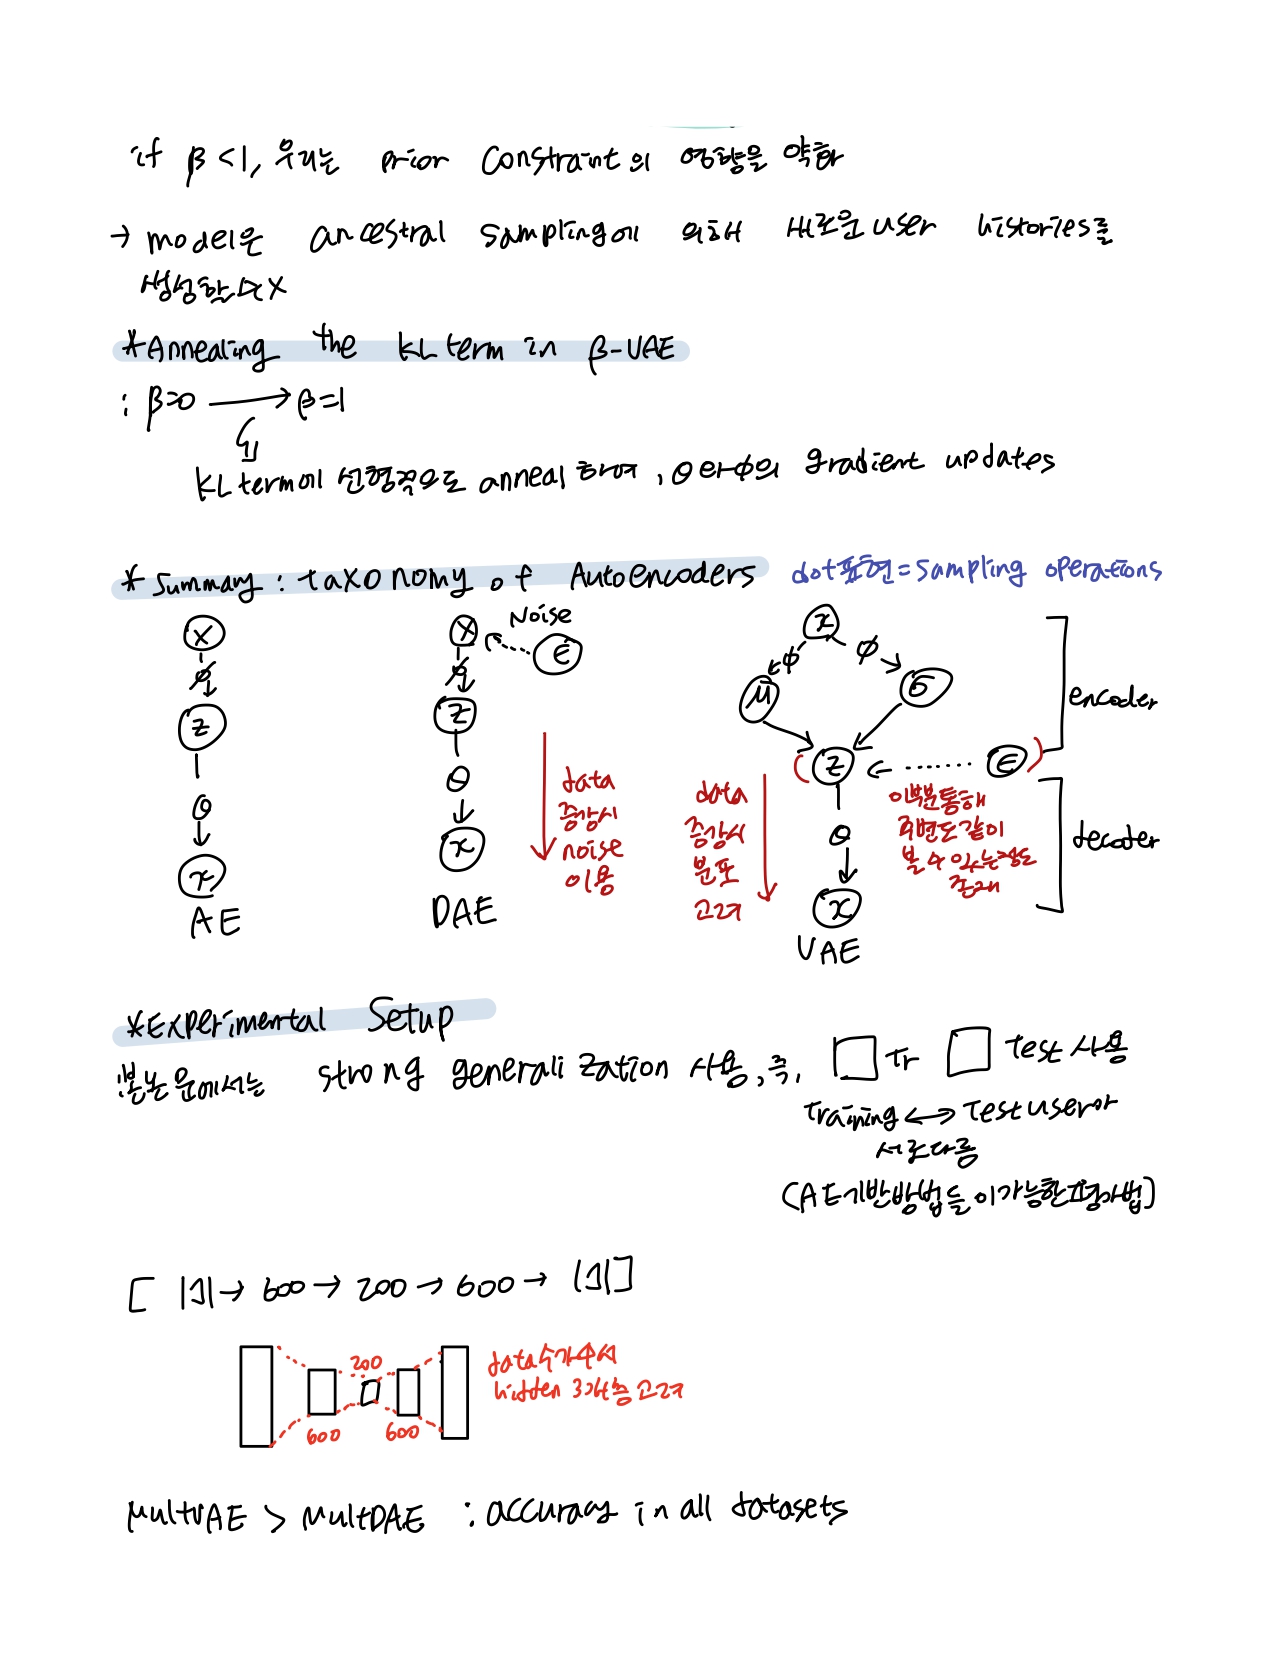 if β<1, 우리는 prior constraint의 영향을 약화
→ model은 ancestral sampling에 의해 새로운 user histories를
생성할 수 X
*Annealing the KL term in β-VAE
: β=0 → β=1
KL term에 선형적으로 anneal 하여, θ와 ϕ의 gradient updates
* Summary : taxonomy of Autoencoders
dot표현=sampling operations
x
ϕ
z
θ
x
AE
Noise
x
ϵ
ϕ
z
θ
x
DAE
data
증강시
noise
이용
x
ϕ ϕ
μ σ
z ϵ
θ
x
VAE
data
증강시
분포
고려
이부분통해
주변도같이
볼 수 있는정도
존재
encoder
decoder
*Experimental Setup
:본논문에서는 strong generalization 사용, 즉, □ tr □ test 사용
training ↔ test user아
서로다름
(AE기반방법들이가능한평가법)
[ |J| → 600 → 200 → 600 → |J| ]
200
600 600
data수가수서
hidden 3개층 고려
multVAE > multDAE : accuracy in all datasets